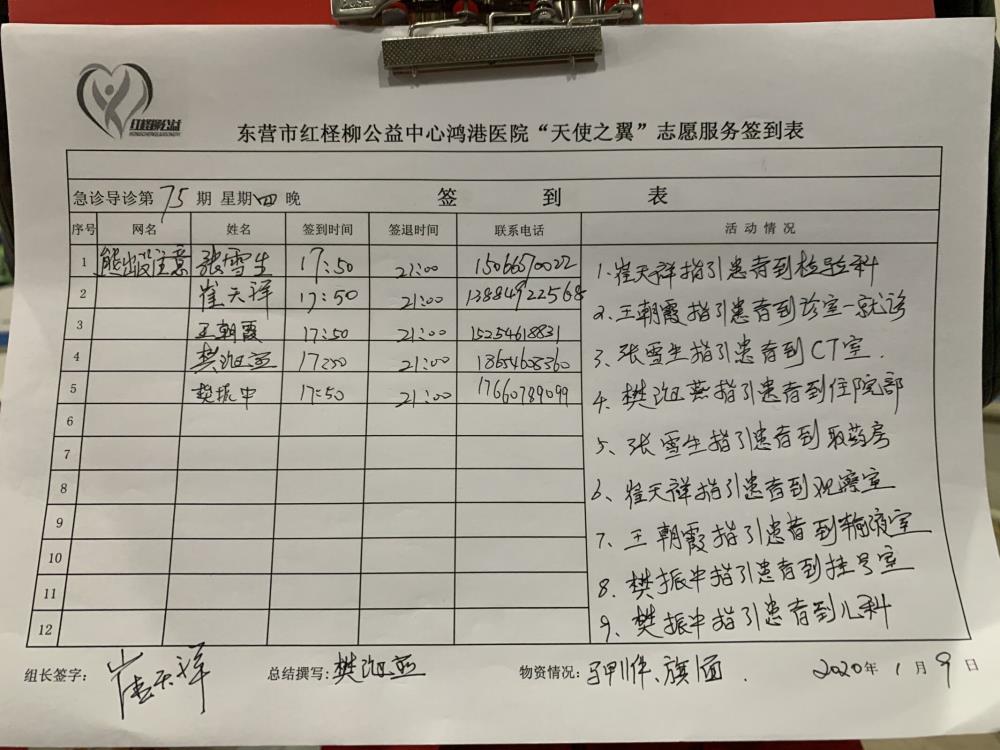 红柽柳公益
HONGCHENGLIUGONGYI
东营市红柽柳公益中心鸿港医院“天使之翼”志愿服务签到表
急诊导诊第 75 期 星期四晚 签 到 表
序号 网名 姓名 签到时间 签退时间 联系电话 活动情况
1 熊出没注意 张雪生 17:50 21:00 15066570022
2 崔天祥 17:50 21:00 13884922568
3 王朝霞 17:50 21:00 15254618831
4 樊 17:50 21:00 18654608360
5 樊振中 17:50 21:00 17660789099
6
7
8
9
10
11
12
1、崔天祥指引患者到检验科
2、王朝霞指引患者到诊室一就诊
3、张雪生指引患者到CT室.
4、樊 燕指引患者到住院部
5、张雪生指引患者到取药房
6、崔天祥指引患者到观察室
7、王朝霞指引患者到输液室
8、樊振中指引患者到挂号室
9、樊振中指引患者到儿科
组长签字: 崔天祥 总结撰写: 樊 物资情况: 马甲1件、旗1面. 2020年1月9日